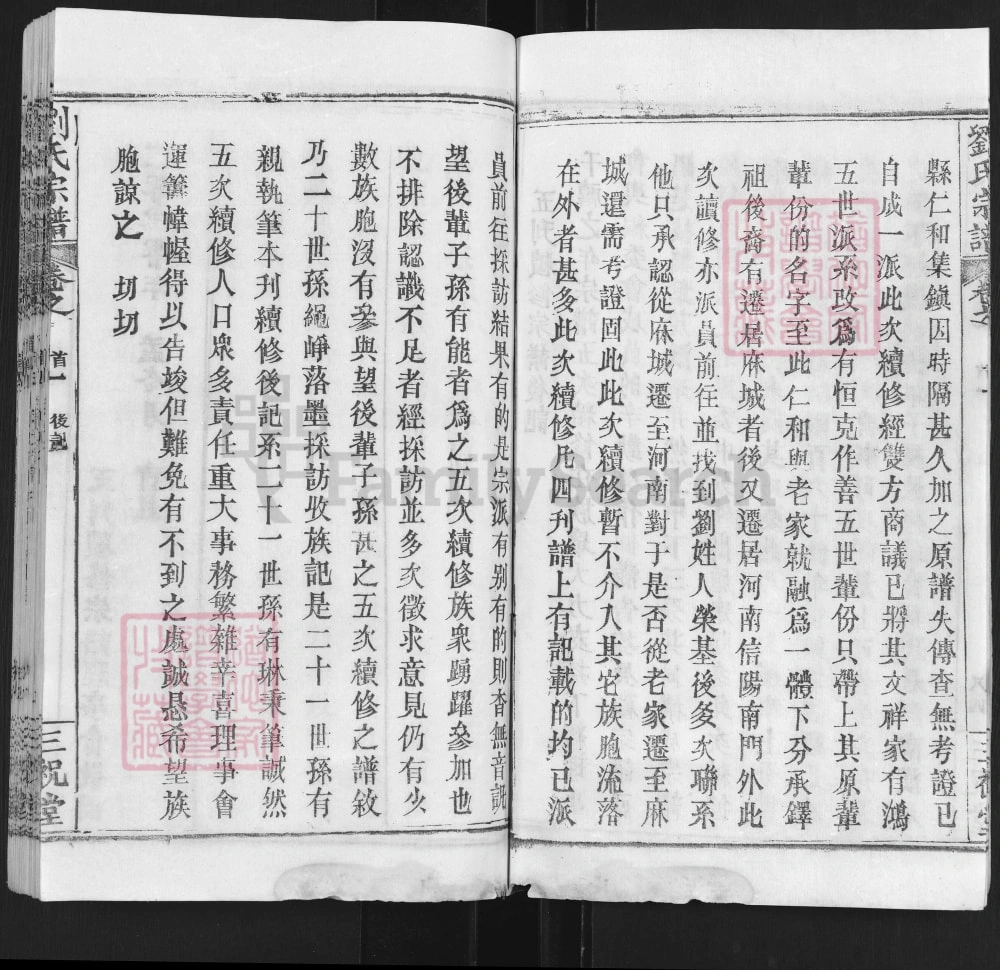 劉氏宗譜
縣仁和集鎮因時隔甚久加之原譜失傳杳無考證已
自成一派此次續修經雙方商議已將其文祥家有鴻
五世派系改爲有恒克作善五世輩份只帶上其原輩
輩份的名字至此仁和與老家就融爲一體下分承鐸
祖後裔有遷居麻城者後又遷居河南信陽南門外此
次讀修亦派員前往並找到劉姓人榮基後多次聯系
他只承認從麻城遷至河南對于是否從老家遷至麻
城還需考證回此此次續修暫不介入其它族胞流落
在外者甚多此次續修凡四刊譜上有記載的均已派
員前往採訪結果有的是宗派有别有的則杳無音訊
望後輩子孫有能者爲之五次續修族衆踴躍參加也
不排除認識不足者經採訪並多次徵求意見仍有少
數族胞没有參與望後輩子孫甚之五次續修之譜敘
乃二十世孫繩崢落墨採訪收族記是二十一世孫有
親執筆本刊續修後記系二十一世孫有琳秉筆誠然
五次續修人口衆多責任重大事務繁雜幸喜理事會
運籌幃幄得以告竣但難免有不到之處誠懇希望族
胞諒之 切切
劉氏宗譜
卷之
首一
後記
三祝堂
FamilySearch